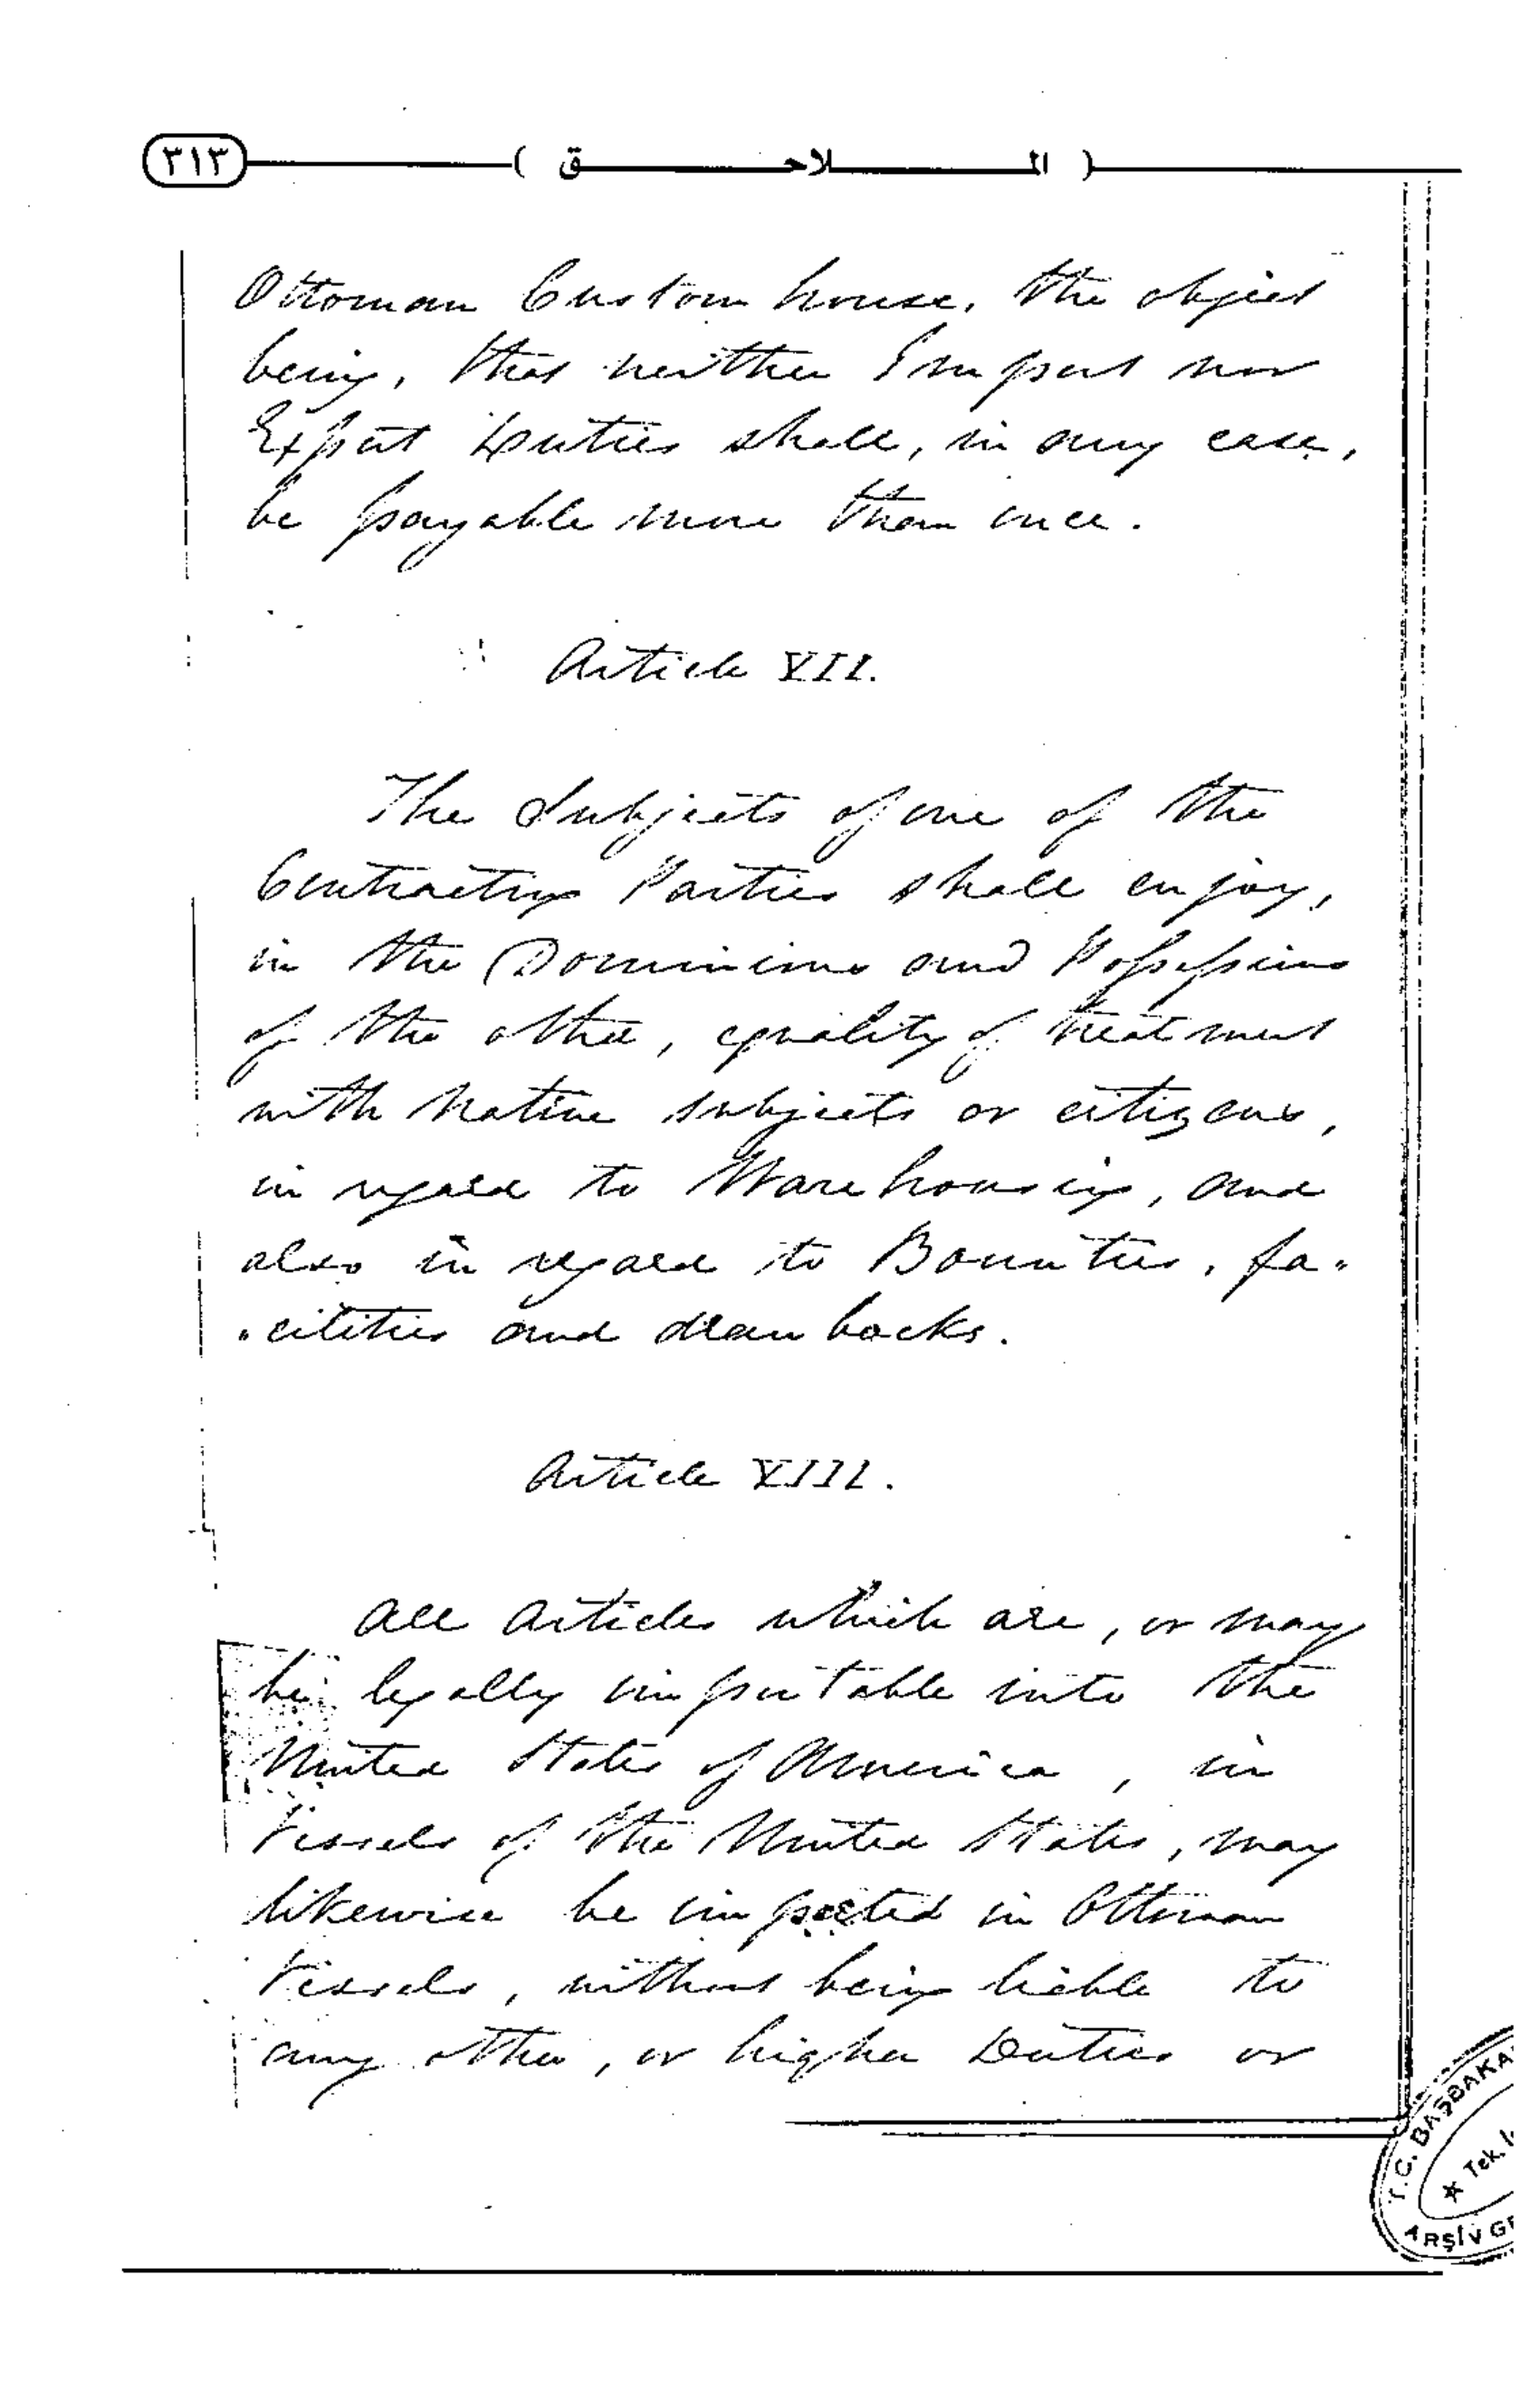 ٣١٣ ( الملاحق )
Ottoman Custom house, the object
being, that neither Import nor
Export Duties shall, in any case,
be payable more than once.
Article XII.
The Subjects of one of the
Contracting Parties shall enjoy,
in the Dominions and Possessions
of the other, equality of treatment
with native subjects or citizens,
in regard to Warehousing, and
also in regard to Bounties, fa-
-cilities and drawbacks.
Article XIII.
All Articles which are, or may
be legally importable into the
United States of America, in
Vessels of the United States, may
likewise be imported in Ottoman
Vessels, without being liable to
any other, or higher Duties or
T.C. BAŞBAKA
★ Tek.
ARŞİV GE